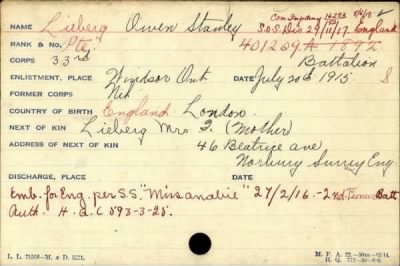 Con. Depney
NAME Lieberg Owen Stanley S.O.S. Dis 29/11/17 England
RANK & NO. Pte 401209 A-1892
CORPS 33rd Battalion
ENLISTMENT, PLACE Windsor Ont DATE July 20th 1915 S
FORMER CORPS Nil
COUNTRY OF BIRTH England London.
NEXT OF KIN Lieberg Mrs F. (Mother)
ADDRESS OF NEXT OF KIN 46 Beatrice ave
Norbury Surrey Eng.
DISCHARGE, PLACE DATE
Emb. for Eng. per S.S. "Missanabie" 27/2/16.-2nd. Pioneer Batt.
Auth. H.Q.C 593-3-25.
L. L. 71508—M. & D. 5771.
M. F. W. 22.
H. Q.